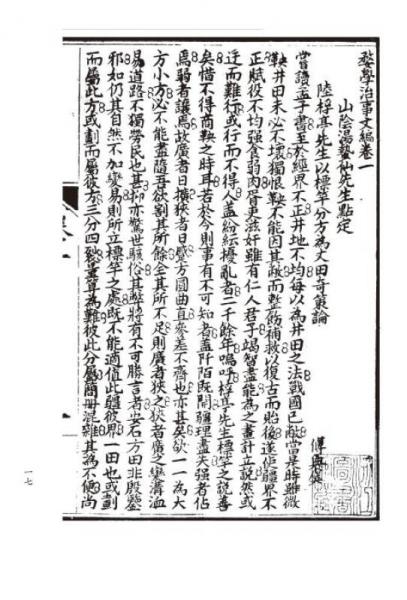 婺學治事文編卷一
山陰湯蟄仙先生點定
陸桴亭先生以標竿分方為丈田奇策論
傅
嘗讀孟子書至於經界不正井地不均每以為井田之法戰國已敝當是時雖微
鞅井田未必不壞獨恨鞅不能因其敝而整飭補救以復古而貽後遂使疆界不
正賦役不均强食弱肉胥更滋奸雖有仁人君子竭智盡能為之畫計立說然或
迂而難行或行而不得人益紛紜擾亂者二千餘年嗚呼桴亭先生標竿之說善
矣惜不得商鞅之時耳若於今則事有不可知者蓋阡陌既開疆理盡失强者佔
焉弱者讓焉故廣者日擴狹者日蹙方圓曲直參差不齊也亦甚矣欲一一為大
方小方必不能盡隨吾欲割其所餘全其所不足則廣者狹之狹者廣之變溝洫
易道路不獨勞民也甚抑亦驚世駭俗其弊將有不可勝言者安石方田非殷鑒
邪如仍其自然不加變易則所立標竿之處既不能適值此疆彼界一田也或劃
而屬此方或劃而屬彼方三分四裂重算為難彼此分屬簡冊混雜其為不便尚
一七